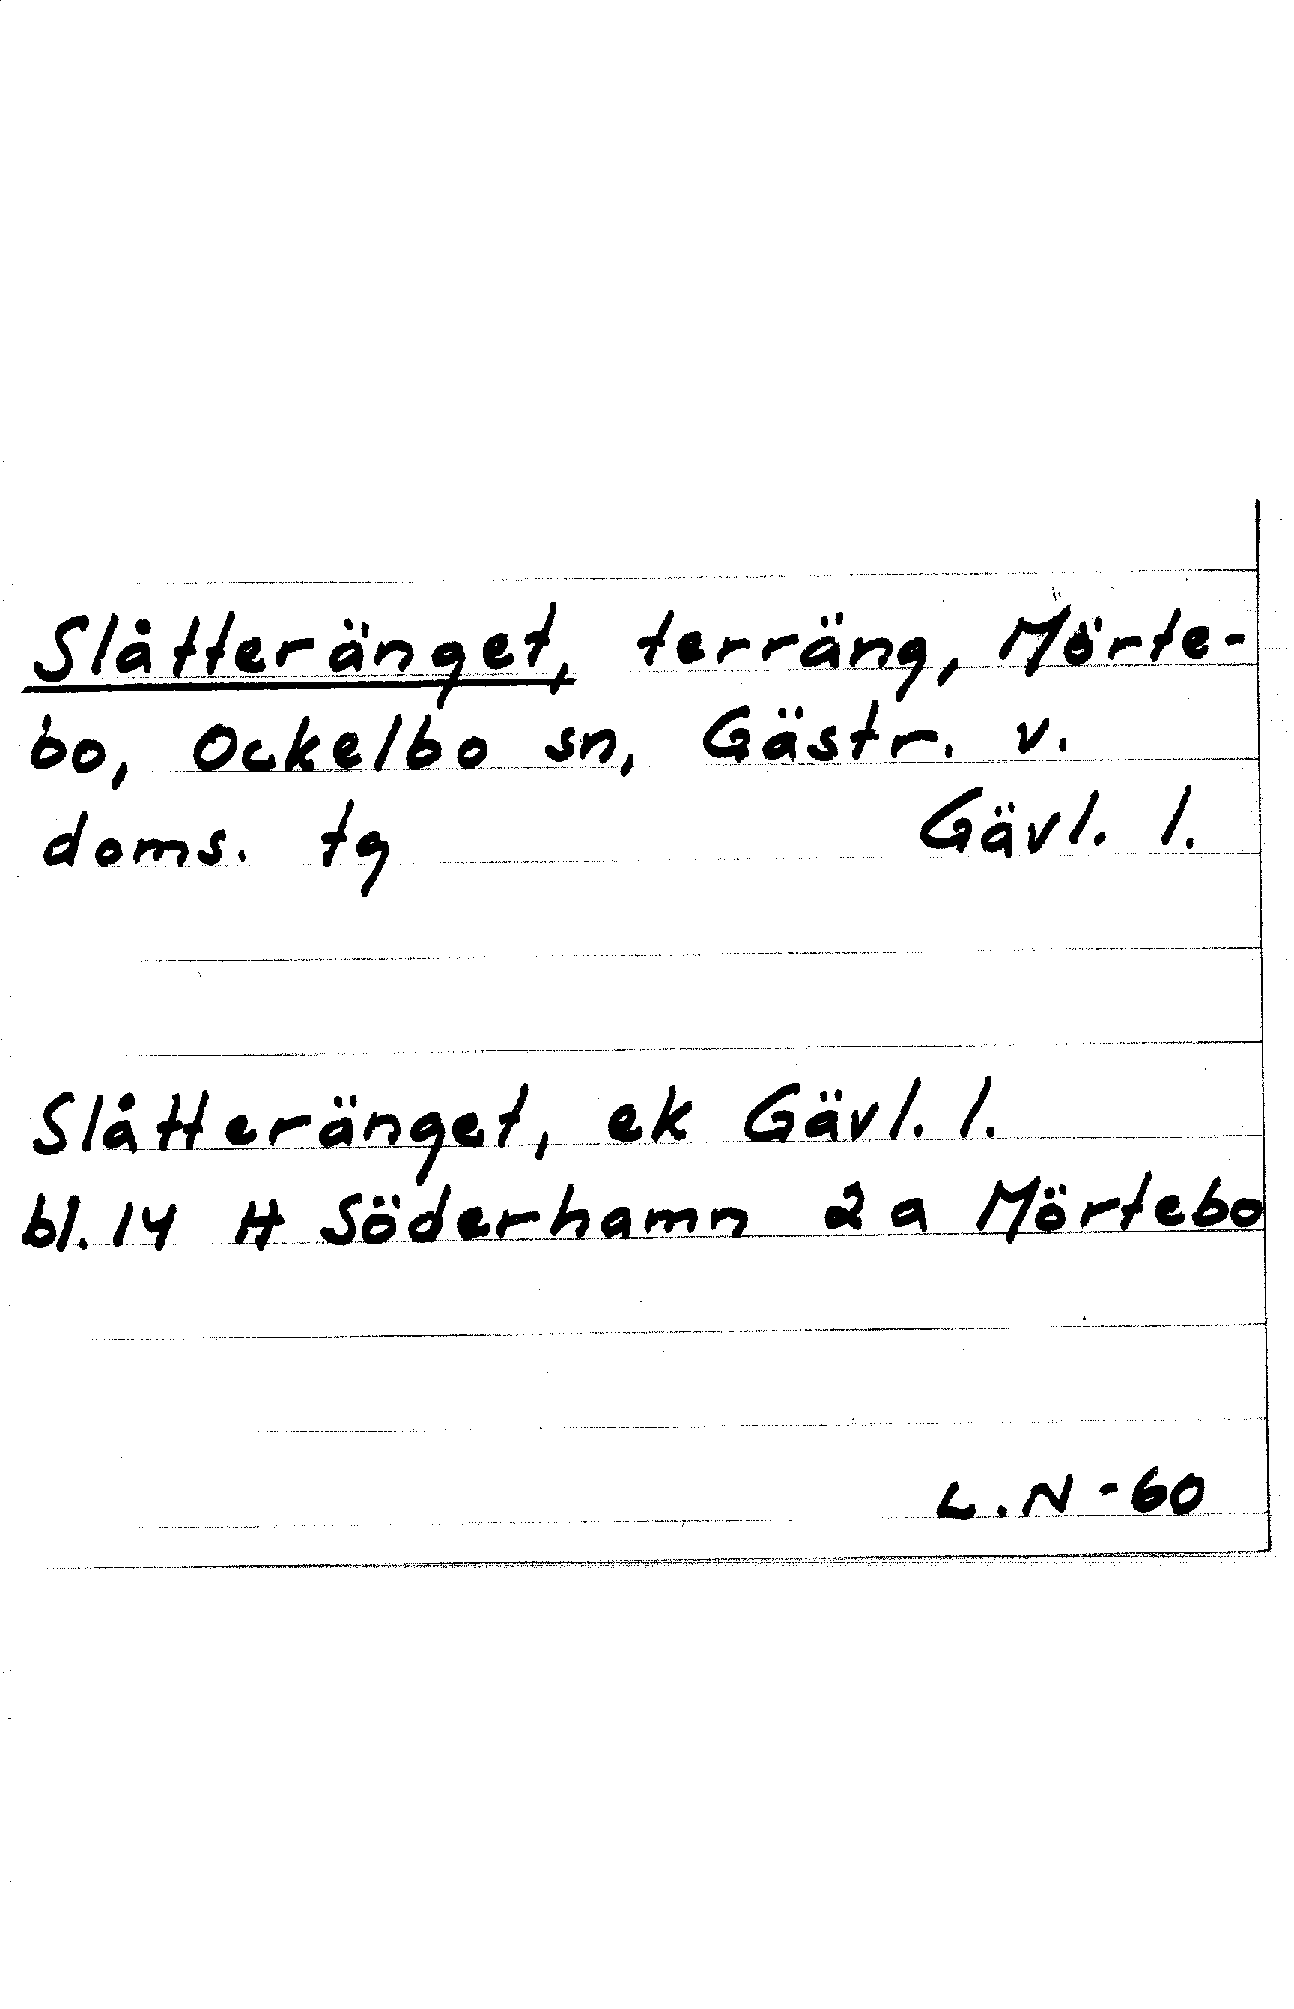 Slåtteränget, terräng, Mörte-
bo, Ockelbo sn, Gästr. v.
doms. tg Gävl. l.
Slåtteränget, ek Gävl. l.
bl. 14 H Söderhamn 2a Mörtebo
L.N -60